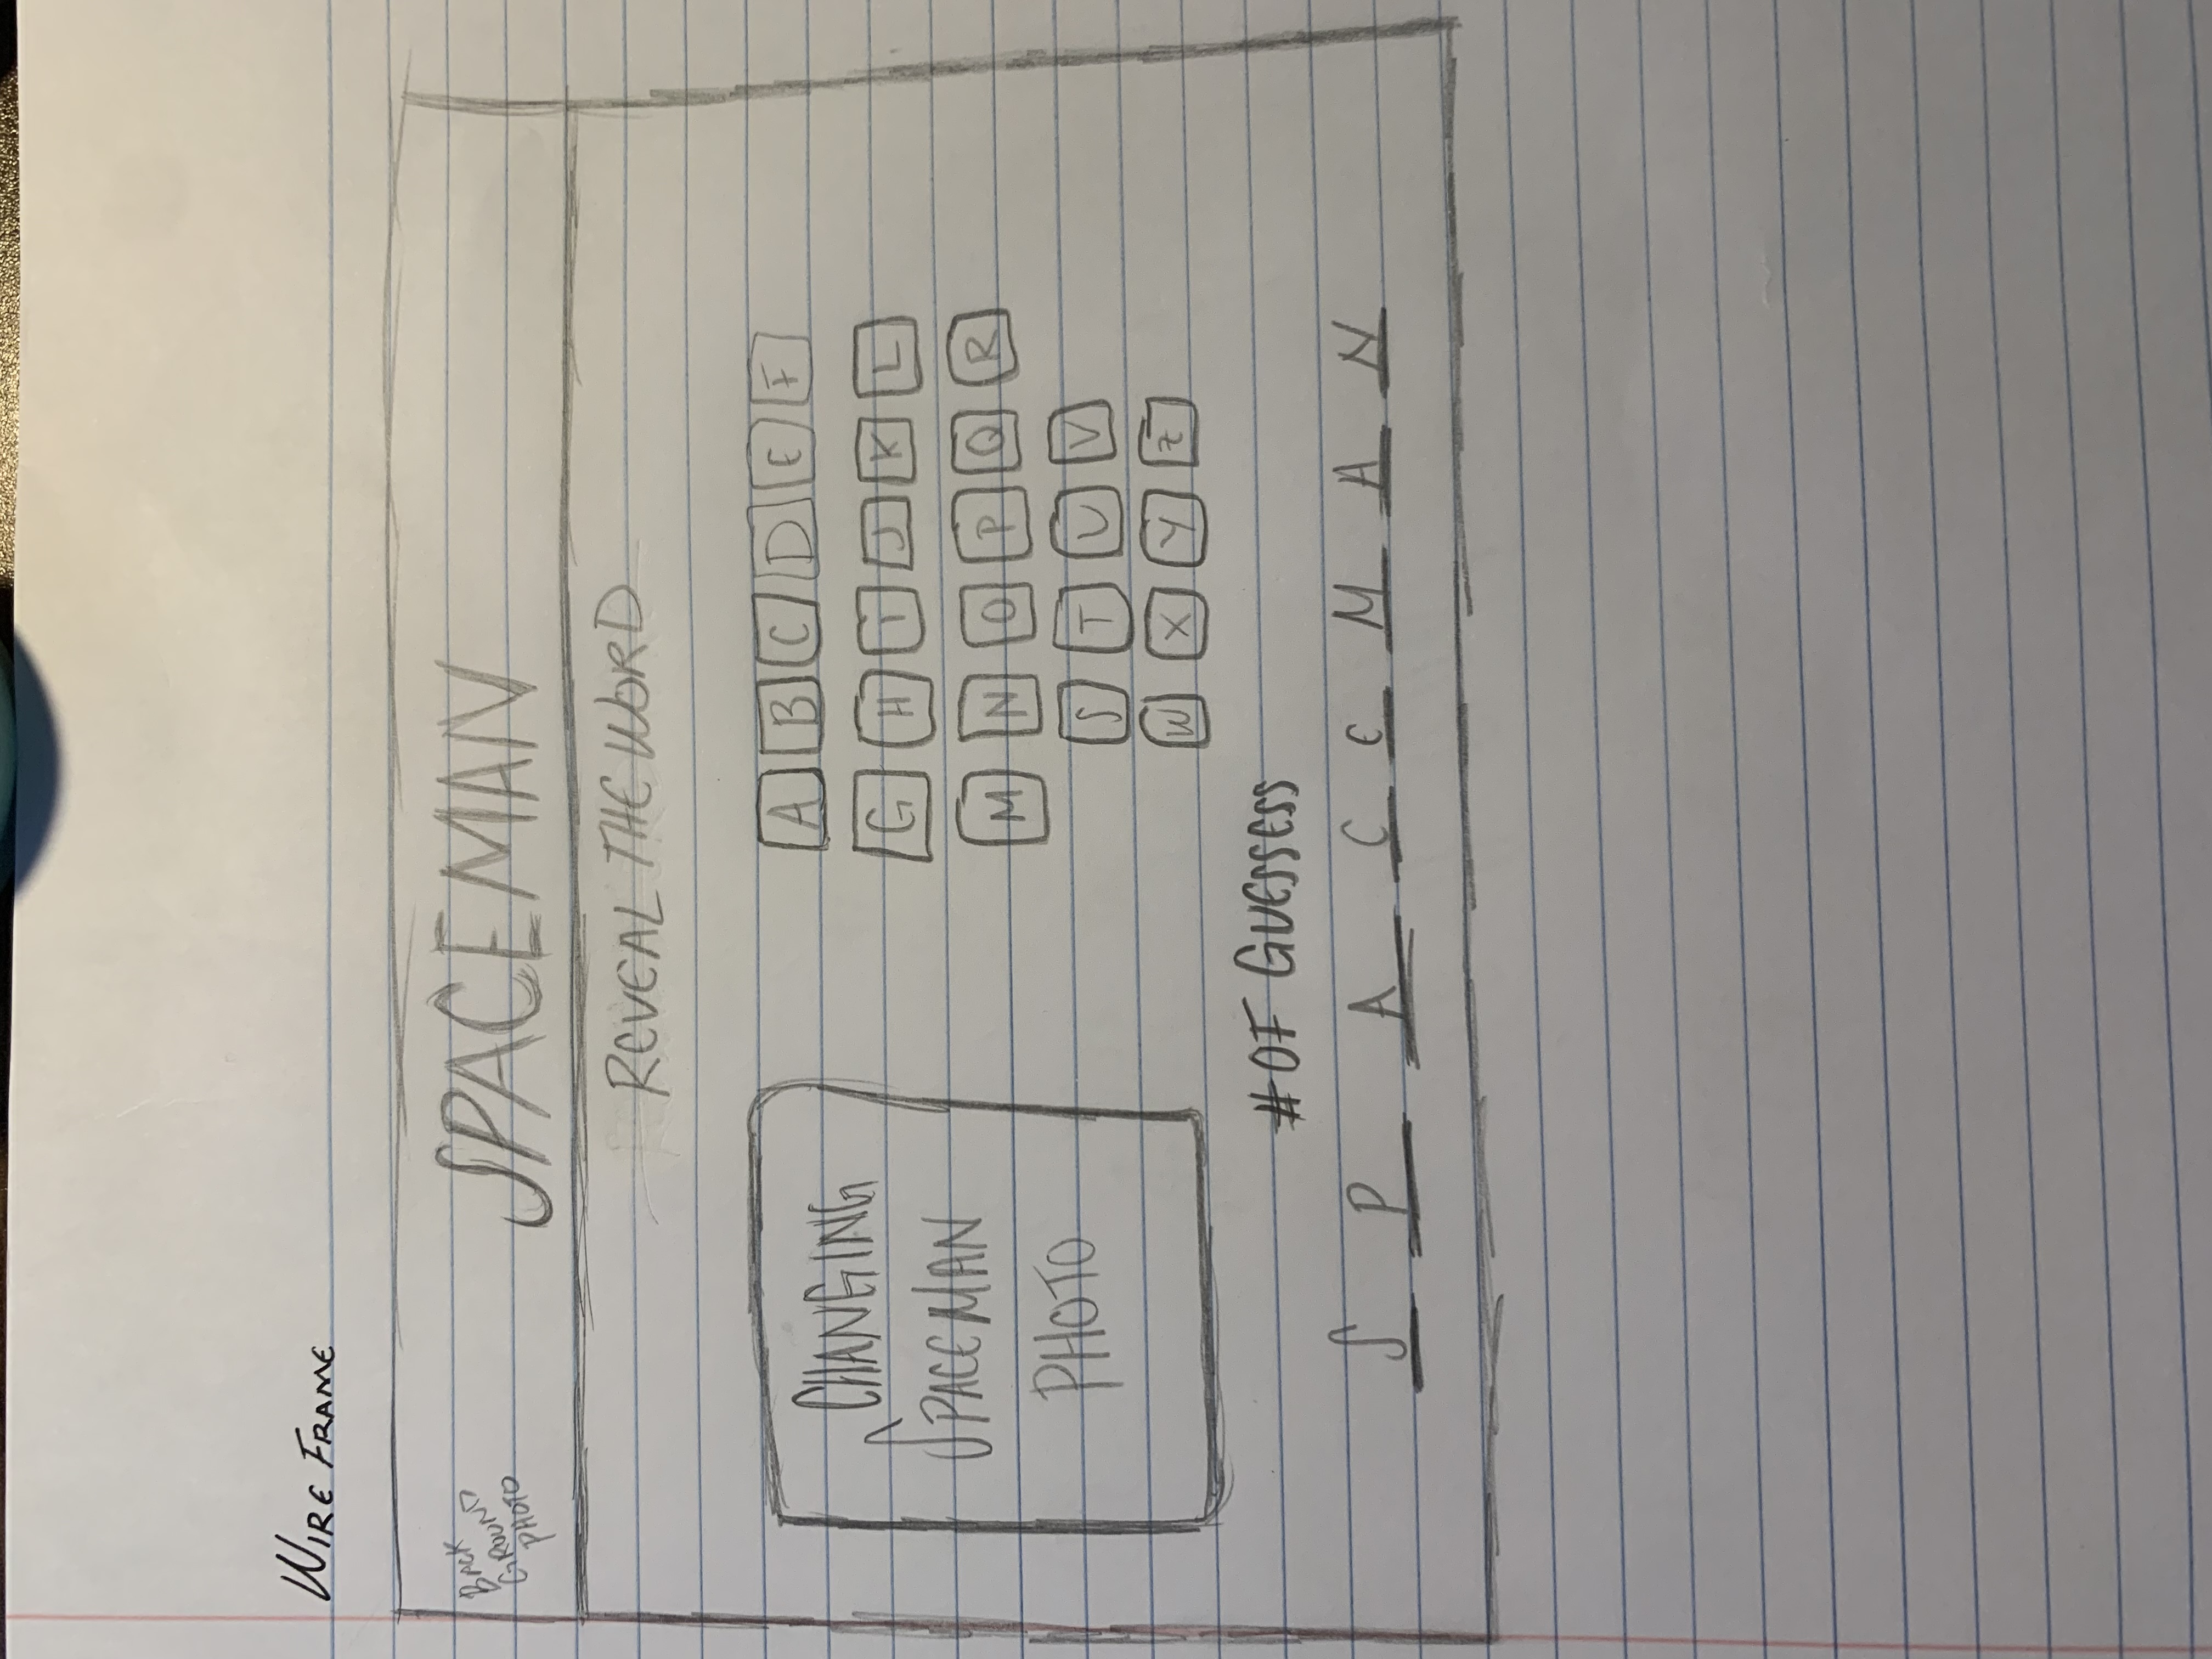 WIRE FRAME
BACK
GROUND
PHOTO
SPACEMAN
REVEAL THE WORD
CHANGING
SPACEMAN
PHOTO
A B C D E F
G H I J K L
M N O P Q R
S T U V
W X Y Z
# OF GUESSESS
S P A C E M A N